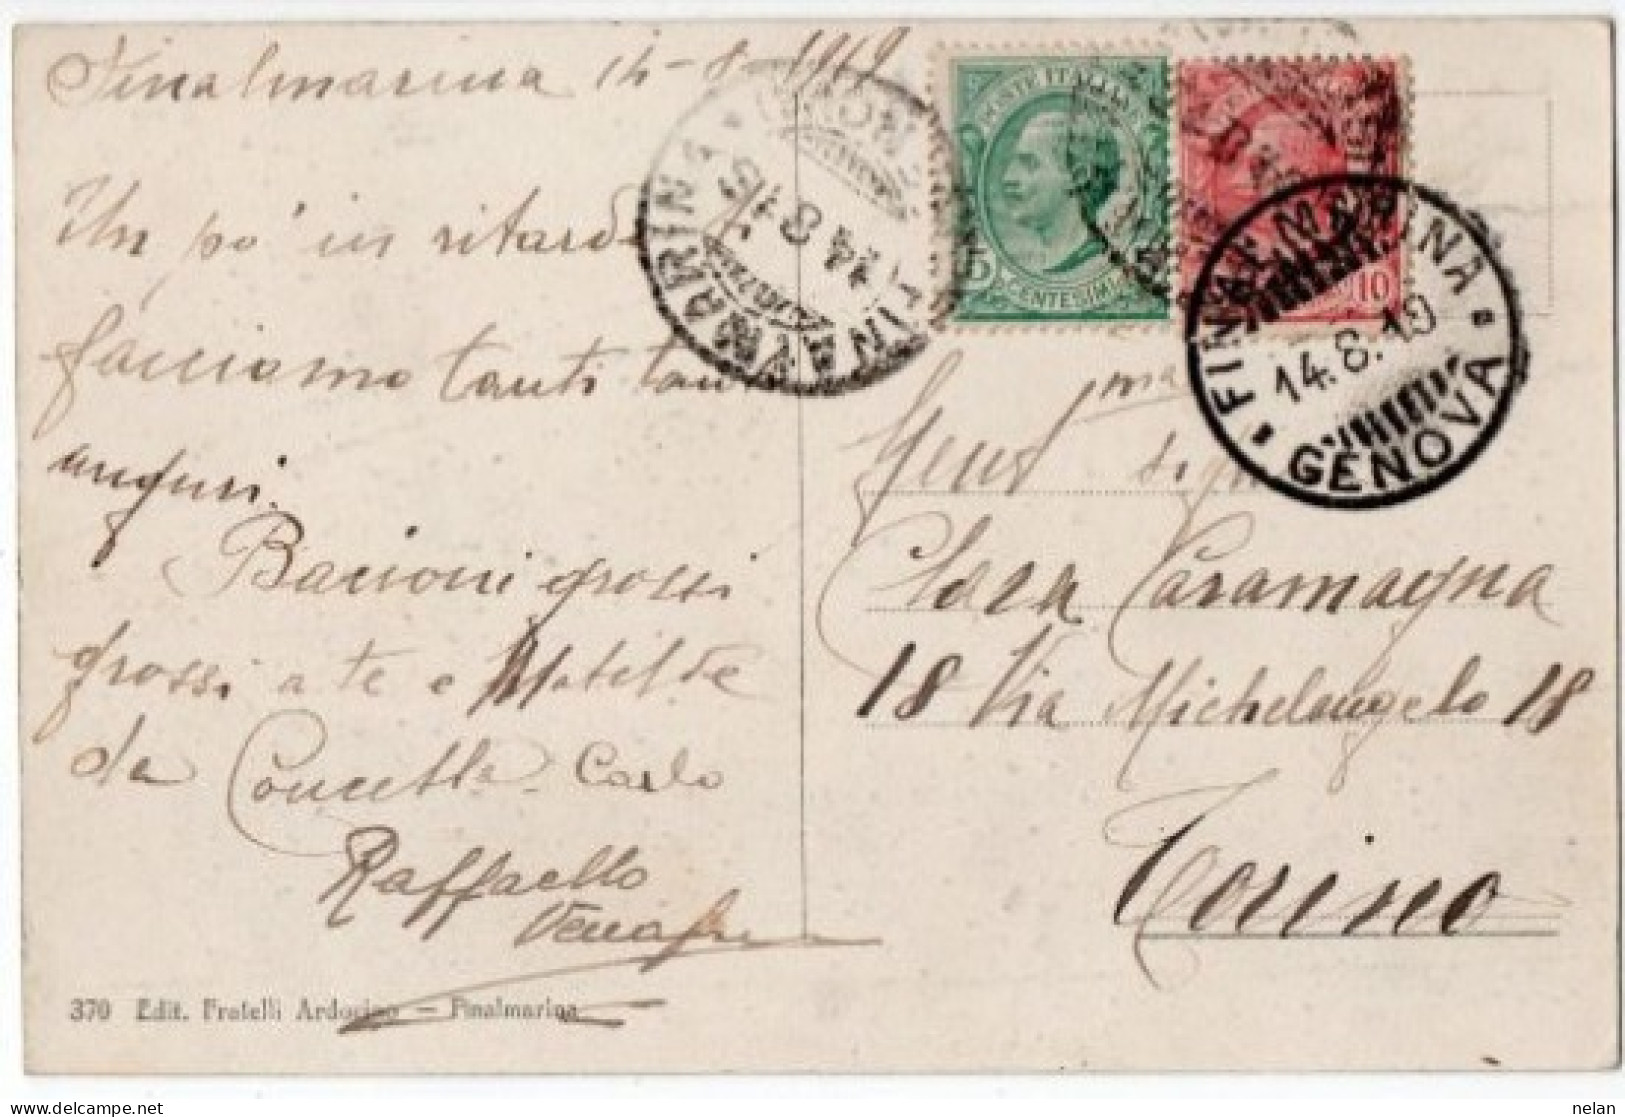 Finalmarina 14-8-1919
Un po' in ritardo
facciamo tanti tanti
auguri.
Bacioni grossi
grossi a te e Matilde
da Concetta Carlo
Raffaello
370 Edit. Fratelli Ardorino — Finalmarina
FINALMARINA
14 8 19
POSTE ITALIANE
5 CENTESIMI
10
FINALMARINA
14.8.19
GENOVA
Gent ma sig
Clara Caramagna
18 Via Michelangelo 18
Torino
nelan